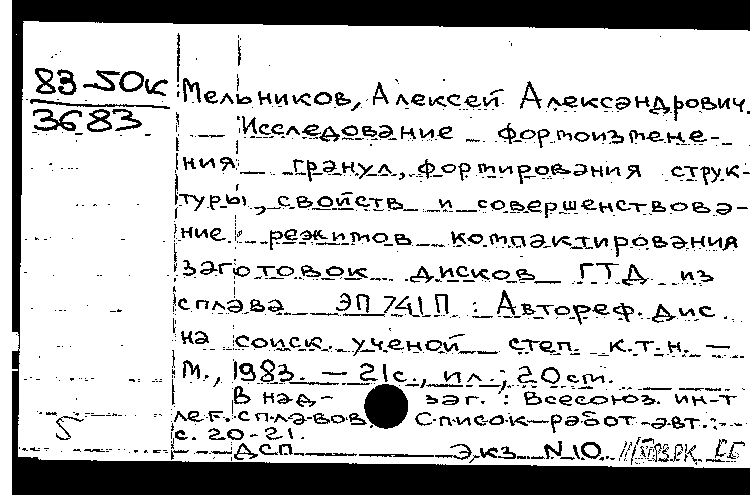 83-50к
3683
Мельников, Алексей Александрович
Исследование формоизмене-
ния гранул, формирования струк-
туры, свойств и совершенствова-
ние режимов компактирования
заготовок дисков ГТД из
сплава ЭП741П : Автореф. дис.
на соиск. ученой степ. к.т.н. —
М., 1983. — 21 с., ил.; 20 см.
В над-заг. : Всесоюз. ин-т
лег. сплавов. Список работ авт.:
с. 20-21.
ДСП Экз N10
5